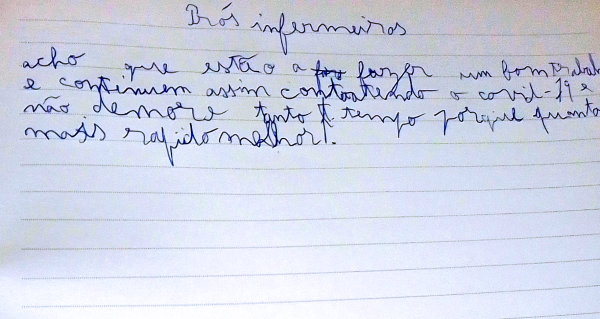 Brós infermeiros
acho que estão a fazer um bom trabalh
e continuem assim contoatendo o covil-19 e
não demore tanto tempo porque quanto
mais rapido melhor!.